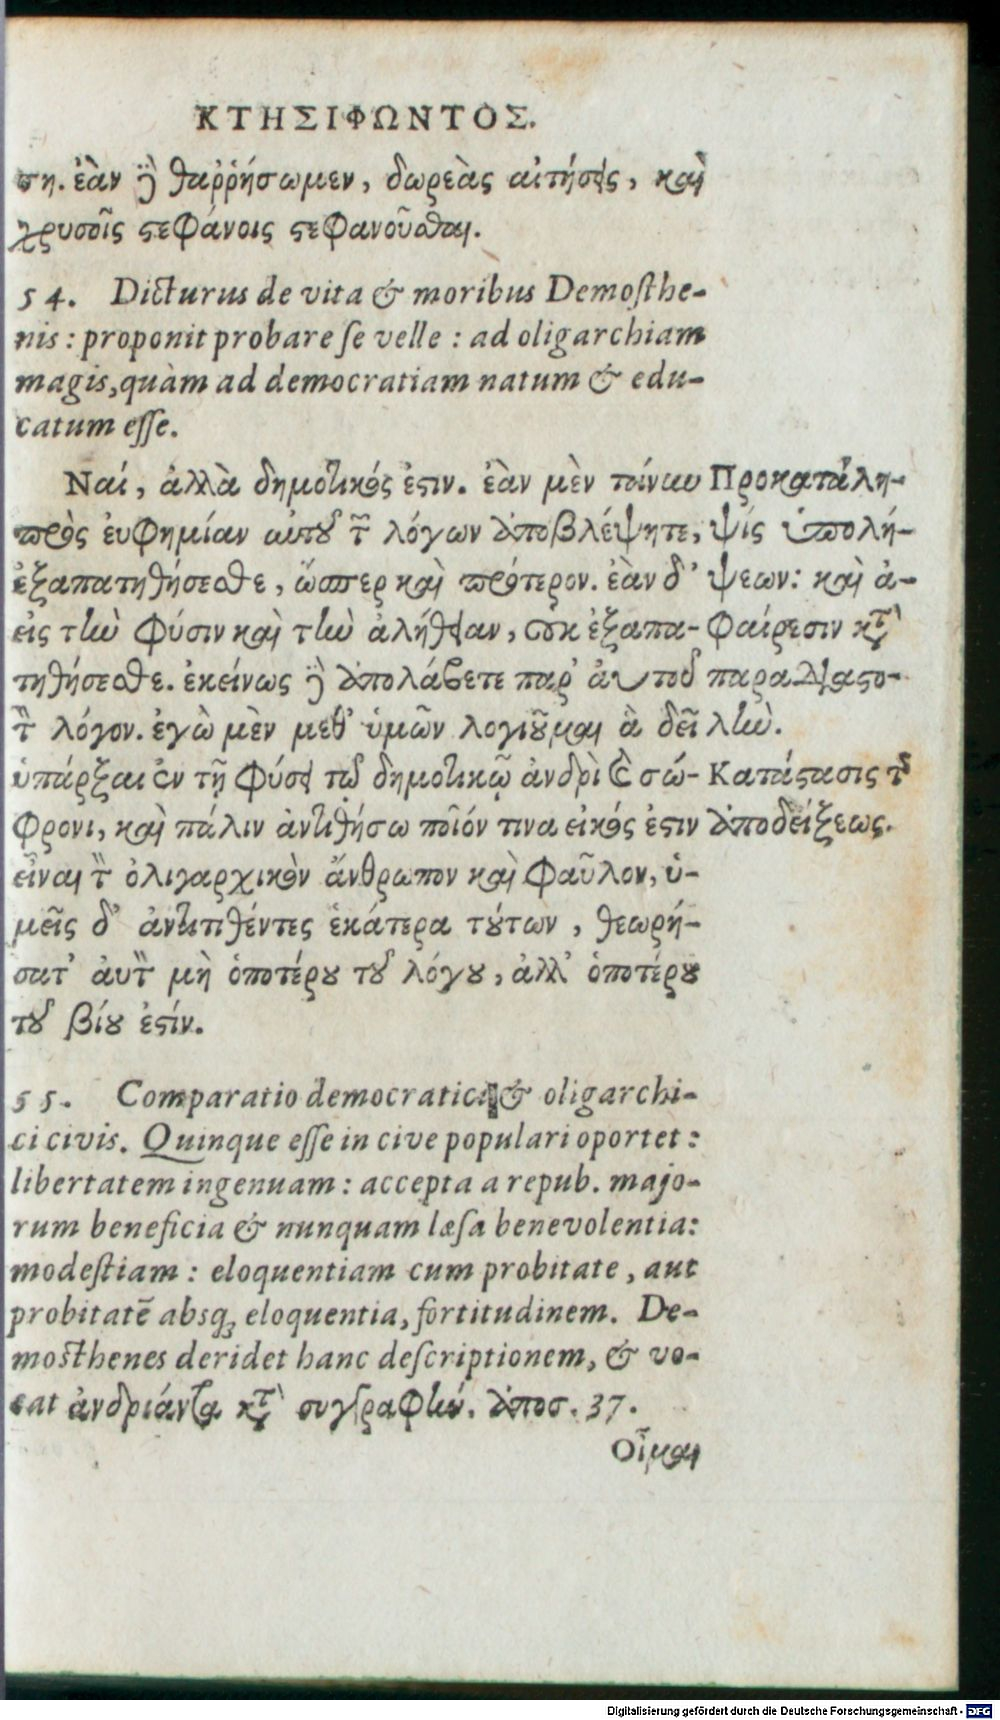 ΚΤΗΣΙΦΩΝΤΟΣ.
ση. ἐὰν ἢ θαῤῥήσωμεν, δωρεὰς αἰτήσεις, καὶ
χρυσοῖς στεφάνοις στεφανοῦσθαι.
54. Dicturus de vita & moribus Demosthe-
nis: proponit probare se velle: ad oligarchiam
magis, quàm ad democratiam natum & edu-
catum esse.
Ναί, ἀλλὰ δημοτικός ἐστιν. ἐὰν μὲν τοίνυν
πρὸς ἐυφημίαν αὐτοῦ τῶν λόγων ἀποβλέψητε,
ἐξαπατηθήσεσθε, ὥσπερ καὶ πρότερον. ἐὰν δ'
εἰς τὴν φύσιν καὶ τὴν ἀλήθειαν, οὐκ ἐξαπα-
τηθήσεσθε. ἐκείνως ἢ ἀπολάβετε παρ' ἀυτοῦ
τὸν λόγον. ἐγὼ μὲν μεθ' ὑμῶν λογιοῦμαι ἃ δεῖ
ὑπάρξαι ἐν τῇ φύσει τῷ δημοτικῷ ἀνδρὶ καὶ σώ-
φρονι, καὶ πάλιν ἀντιθήσω ποῖόν τινα εἰκός ἐστιν
εἶναι τὸν ὀλιγαρχικὸν ἄνθρωπον καὶ φαῦλον, ὑ-
μεῖς δ' ἀντιτιθέντες ἑκάτερα τούτων, θεωρή-
σατ' ἀυτὸν μὴ ὁποτέρου τοῦ λόγου, ἀλλ' ὁποτέρου
τοῦ βίου ἐστίν.
Προκατάλη-
ψίς ὑπολή-
ψεων: καὶ ἀ-
φαίρεσιν κατὰ
παραδιαστο-
λήν.
Κατάστασις τῆς
ἀποδείξεως.
55. Comparatio democratici & oligarchi-
ci civis. Quinque esse in cive populari oportet:
libertatem ingenuam: accepta a repub. majo-
rum beneficia & nunquam læsa benevolentia:
modestiam: eloquentiam cum probitate, aut
probitatē absq; eloquentia, fortitudinem. De-
mosthenes deridet hanc descriptionem, & vo-
cat ἀνδριάντα κατὰ συγγραφήν. ἀποσ. 37.
Οἶμαι
Digitalisierung gefördert durch die Deutsche Forschungsgemeinschaft - DFG